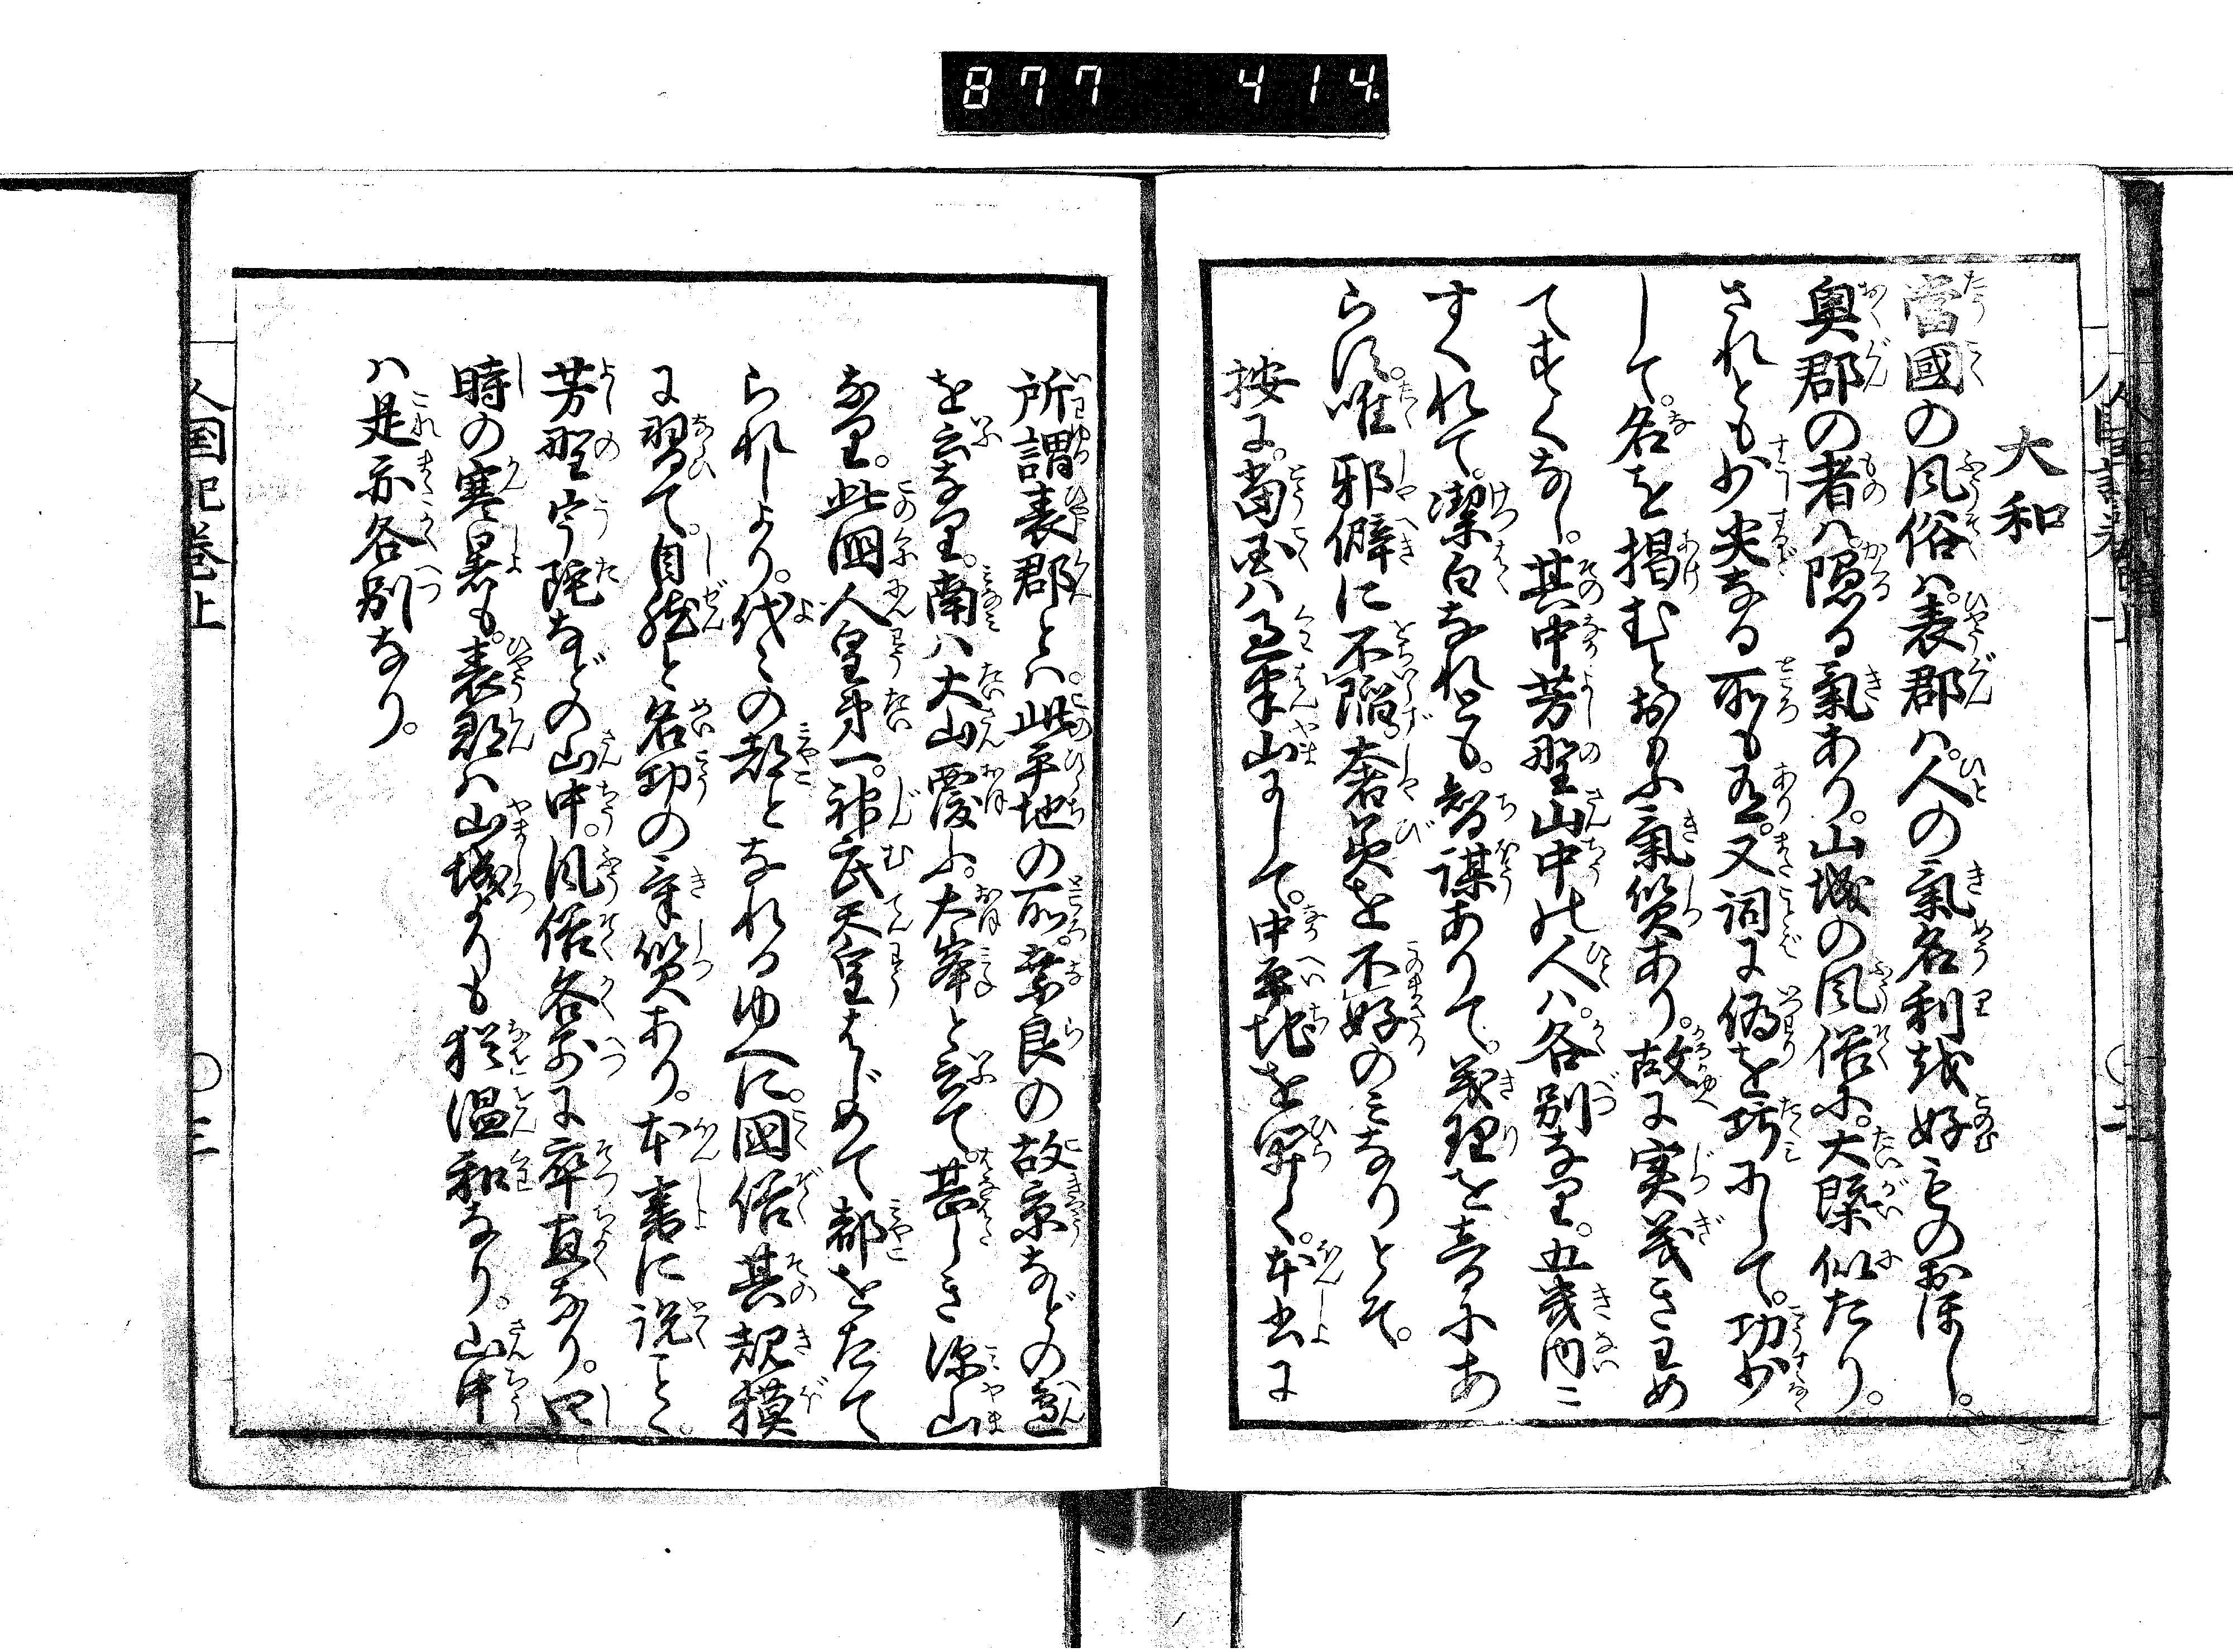 877 414
大和
當國の風俗ハ。表郡ハ。人の氣名利越好ものおほし。
奥郡の者ハ。隠る氣あり。山城の風俗に。大槩似たり。
されとも少尖なる所も有。又詞に偽を巧にして。功少
して。名を掲むとおもふ氣質あり。故に実義きわめ
てすくなし。其中芳野山中の人ハ。各別なり。五畿内ニ
すくれて。潔白なれとも。智謀ありて。義理を音にあ
らはす。唯邪僻に不陥。奢美を不好のミなりとそ。
按に。當国ハ過半山にして。中平地を開く。本書に
所謂表郡とハ。此平地の所。奈良の故京などの邉
を云なり。南ハ大山覆ふ。大峯と云て。甚しき深山
なり。此國人皇第一。神武天皇はじめて都をたて
られしより。代々の都となれるゆへに。國俗其規模
に習て。自然と名功の氣質あり。本書に説ことく。
芳野宇陀などの山中。風俗各別に率直なり。四
時の寒暑も。表郡ハ山城よりも猶温和なり。山中
ハ是亦各別なり。
人国記巻上 〇三